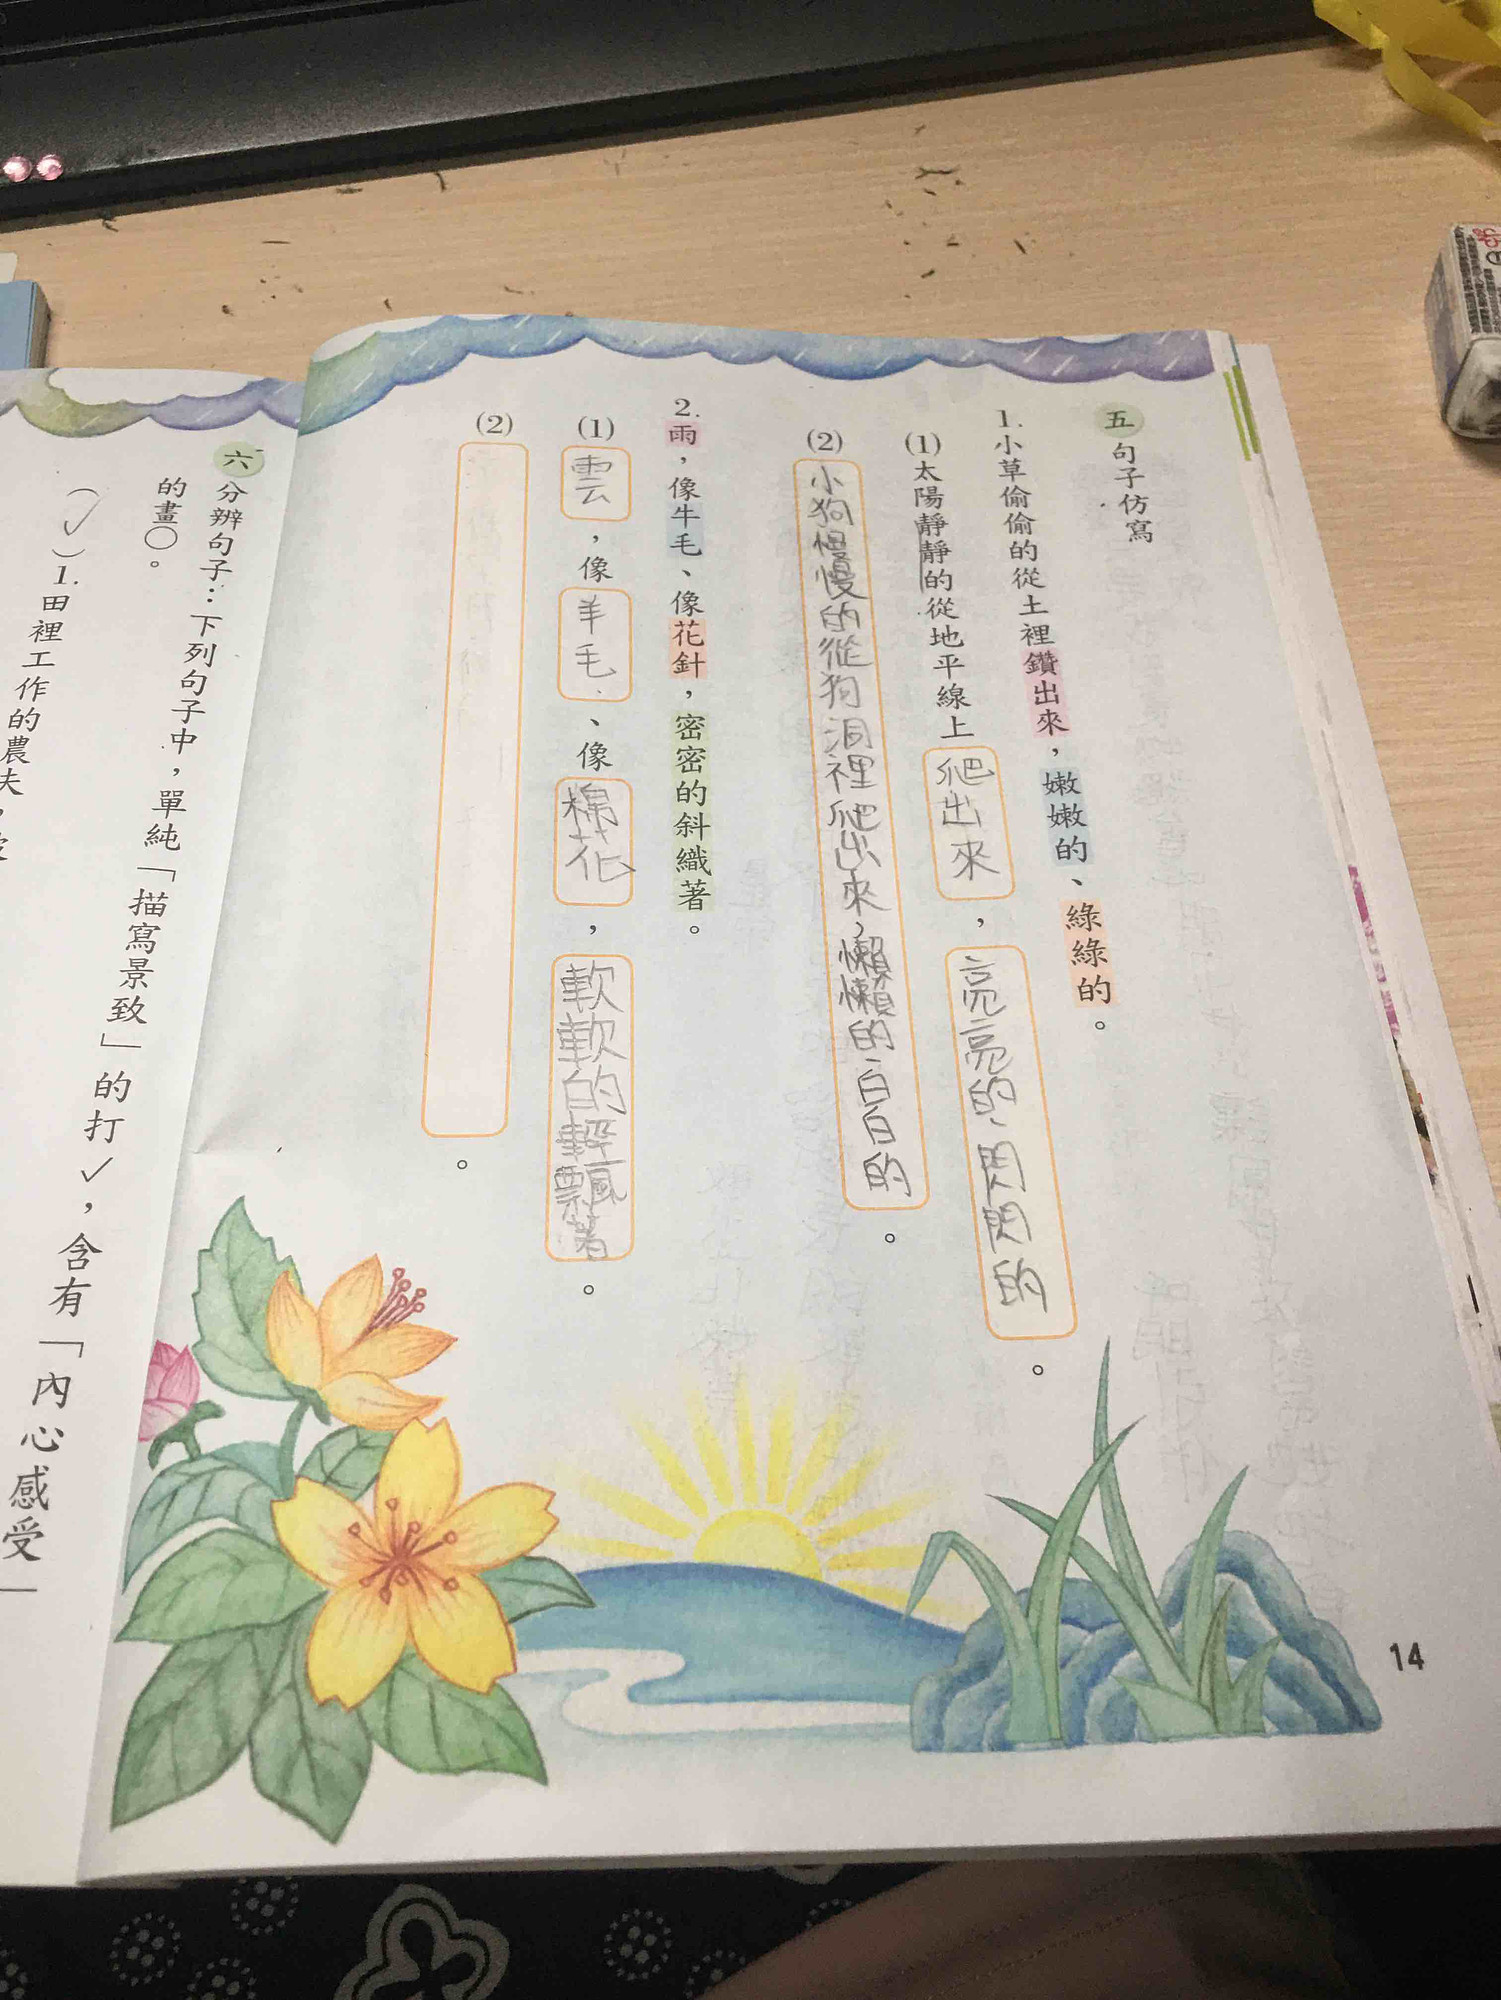 五 句子仿寫
1.小草偷偷的從土裡鑽出來，嫩嫩的、綠綠的。
(1)太陽靜靜的從地平線上爬出來，亮亮的、閃閃的。
(2)小狗慢慢的從狗洞裡爬出來，懶懶的、白白的。
2.雨，像牛毛、像花針，密密的斜織著。
(1)雲，像羊毛、像棉花，軟軟的輕飄著。
(2)。
六 分辨句子：下列句子中，單純「描寫景致」的打✓，含有「內心感受」
的畫○。
(✓)1.田裡工作的農夫，
14